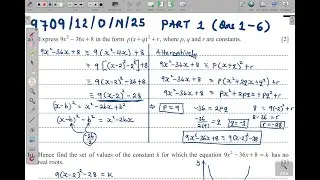 9709/12/O/N/25 PART 1 (Qns 1-6)
a) Express 9x² - 36x + 8 in the form p(x+q)² + r, where p, q and r are constants. [2]
9x²-36x+8 ≡ 9(x²-4x)+8
≡ 9[(x-2)²-2²]+8
≡ 9(x-2)²-36+8
≡ 9(x-2)²-28
(x-b)² = x²-2bx+b²
(x-b)²-b² = x²-2bx
Alternatively
9x²-36x+8 ≡ p(x+q)²+r
9x²-36x+8 ≡ p(x²+2qx+q²)+r
9x²-36x+8 ≡ px²+2pqx+pq²+r
⇒ p=9
-36 = 2pq
q=-2
9x²-36x+8 ≡ 9(x-2)²-28
Hence find the set of values of the constant k for which the equation 9x² - 36x + 8 = k has no
real roots.
9(x-2)²-28 = k